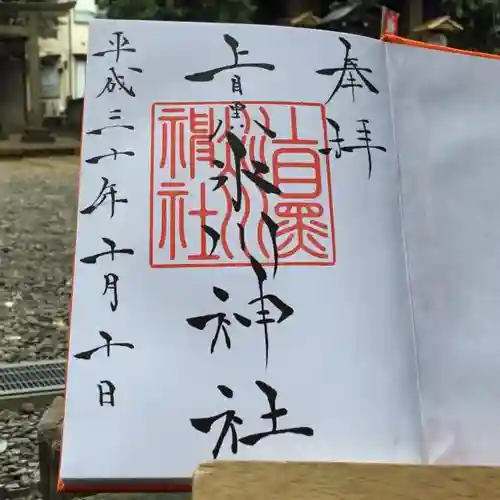 奉拝
上目黒氷川神社
平成三十年十月十日
上目黒
氷川
神社